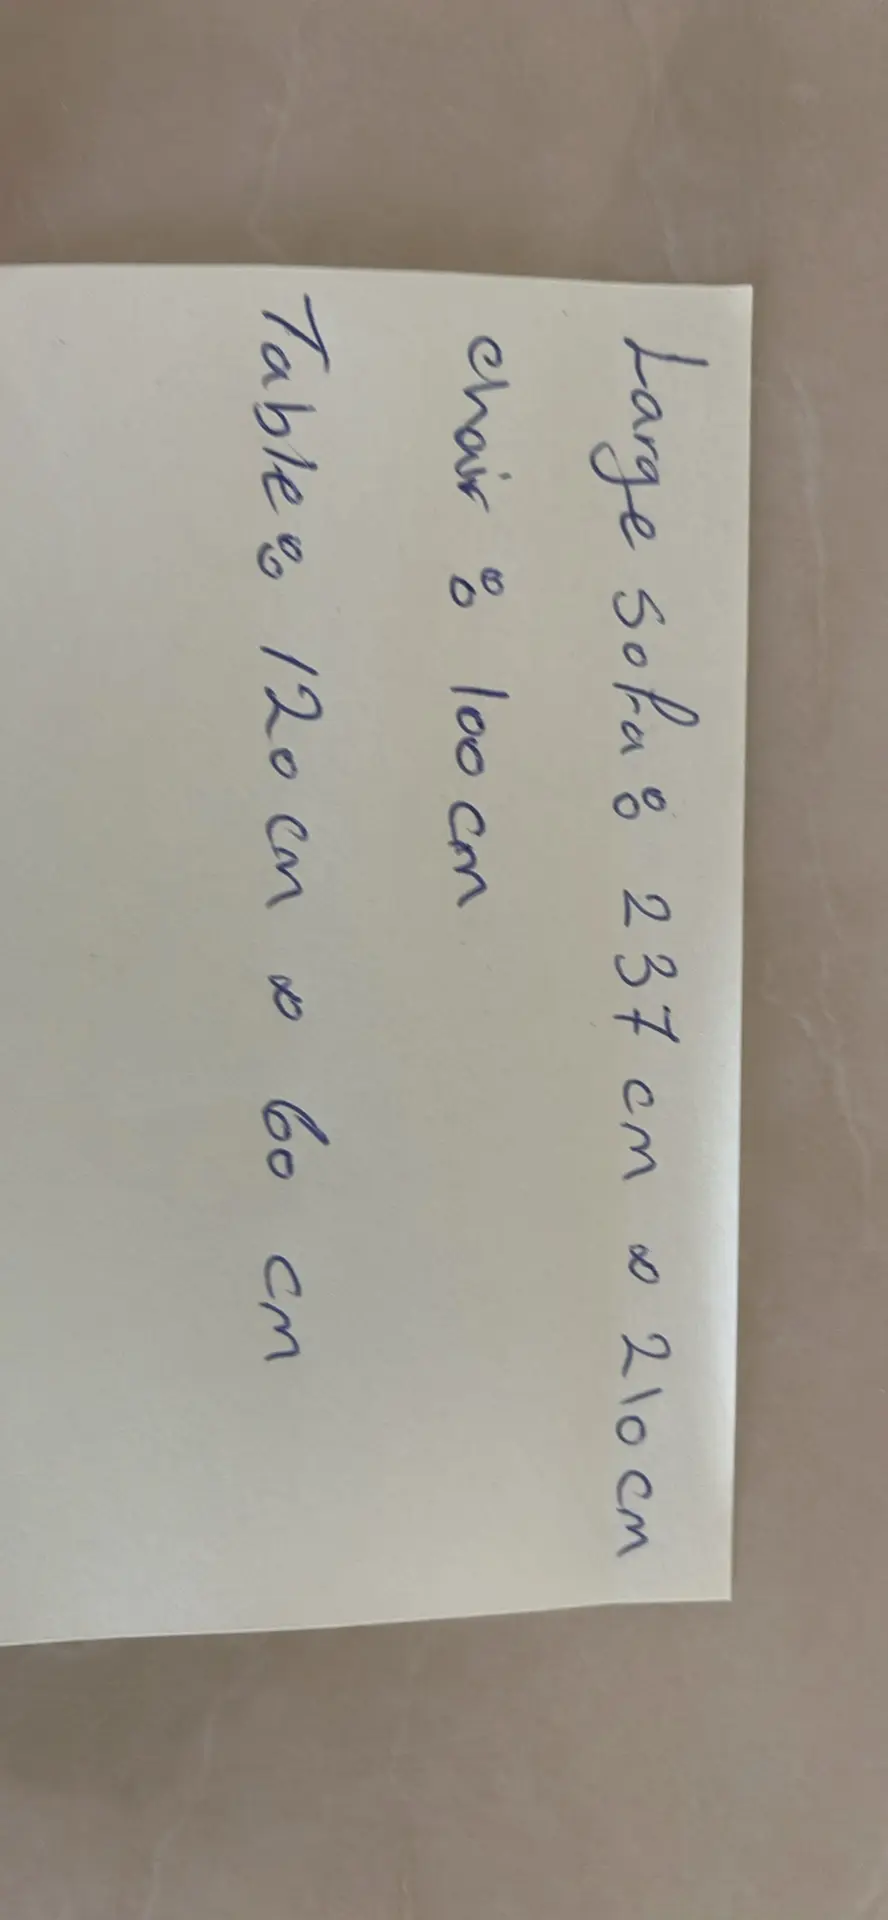 Large sofa: 237 cm ∞ 210 cm
chair: 100 cm
Table: 120 cm ∞ 60 cm